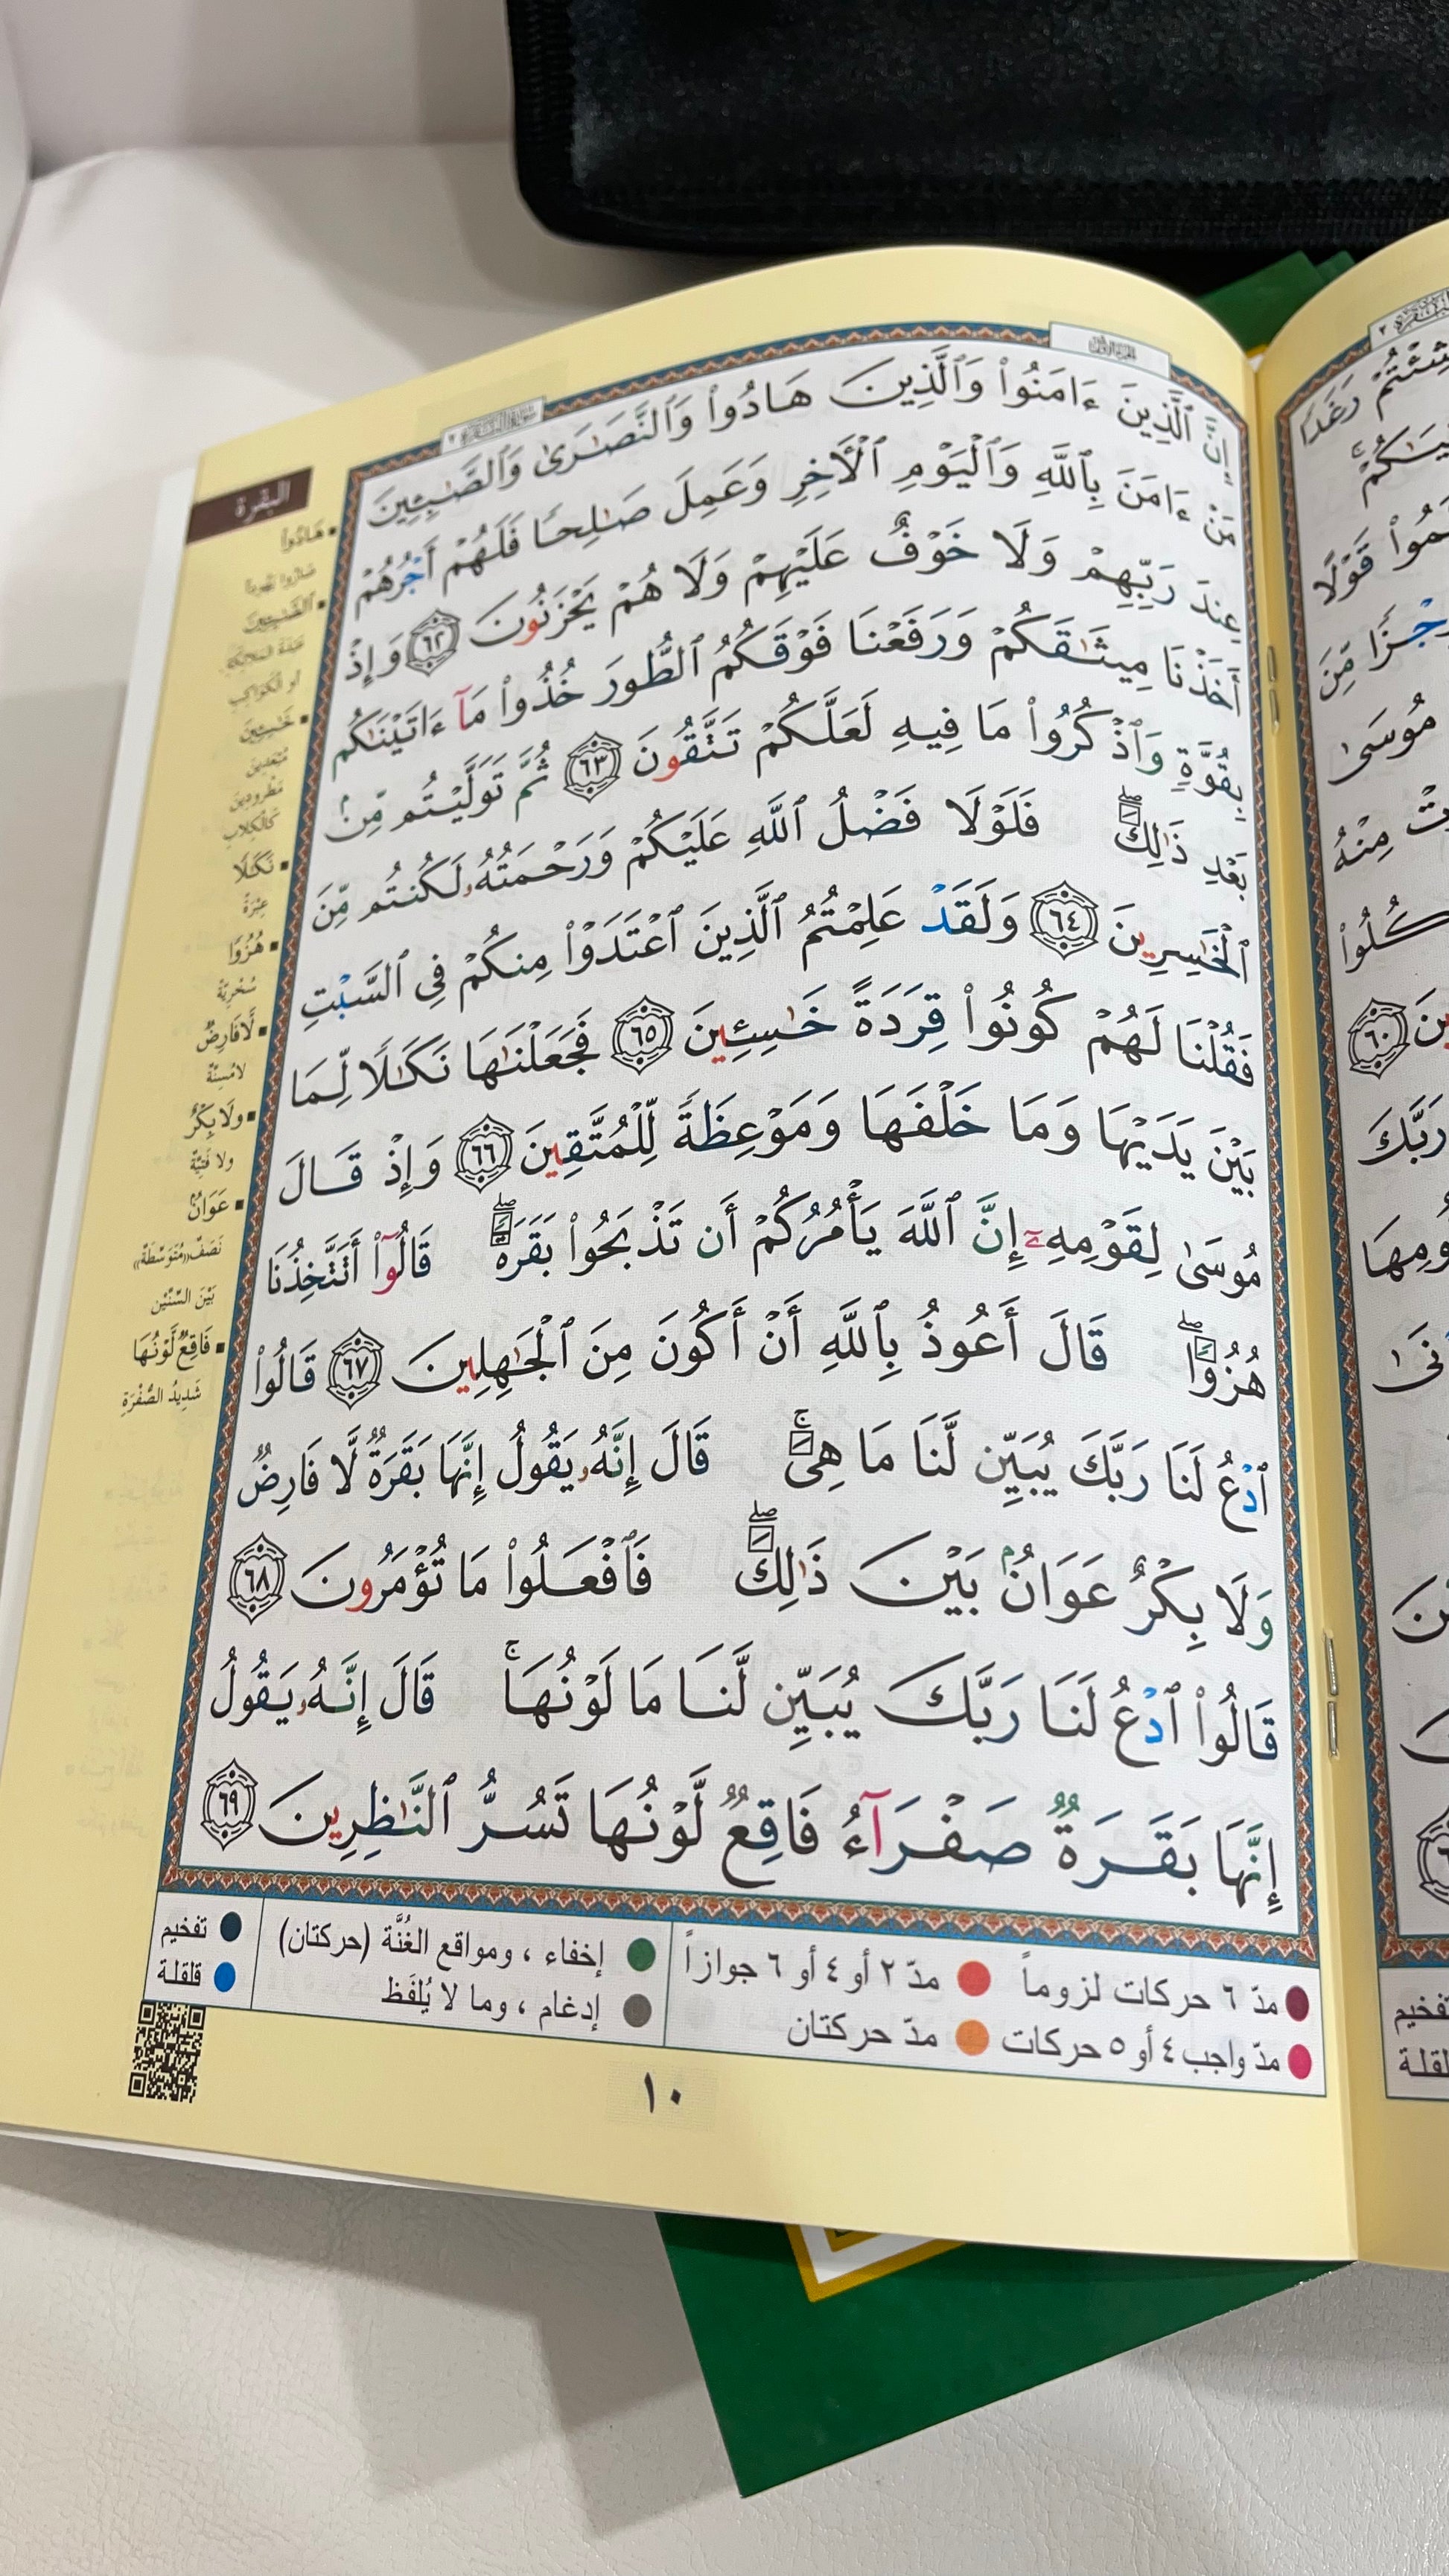 الجزء الأول
سورة البقرة ٢
إِنَّ ٱلَّذِينَ ءَامَنُوا۟ وَٱلَّذِينَ هَادُوا۟ وَٱلنَّصَـٰرَىٰ وَٱلصَّـٰبِـِٔينَ
مَنْ ءَامَنَ بِٱللَّهِ وَٱلْيَوْمِ ٱلْـَٔاخِرِ وَعَمِلَ صَـٰلِحًا فَلَهُمْ أَجْرُهُمْ
عِندَ رَبِّهِمْ وَلَا خَوْفٌ عَلَيْهِمْ وَلَا هُمْ يَحْزَنُونَ ٦٢ وَإِذْ
أَخَذْنَا مِيثَـٰقَكُمْ وَرَفَعْنَا فَوْقَكُمُ ٱلطُّورَ خُذُوا۟ مَآ ءَاتَيْنَـٰكُم
بِقُوَّةٍ وَٱذْكُرُوا۟ مَا فِيهِ لَعَلَّكُمْ تَتَّقُونَ ٦٣ ثُمَّ تَوَلَّيْتُم مِّنۢ
بَعْدِ ذَٰلِكَ ۖ فَلَوْلَا فَضْلُ ٱللَّهِ عَلَيْكُمْ وَرَحْمَتُهُۥ لَكُنتُم مِّنَ
ٱلْخَـٰسِرِينَ ٦٤ وَلَقَدْ عَلِمْتُمُ ٱلَّذِينَ ٱعْتَدَوْا۟ مِنكُمْ فِى ٱلسَّبْتِ
فَقُلْنَا لَهُمْ كُونُوا۟ قِرَدَةً خَـٰسِـِٔينَ ٦٥ فَجَعَلْنَـٰهَا نَكَـٰلًا لِّمَا
بَيْنَ يَدَيْهَا وَمَا خَلْفَهَا وَمَوْعِظَةً لِّلْمُتَّقِينَ ٦٦ وَإِذْ قَالَ
مُوسَىٰ لِقَوْمِهِۦٓ إِنَّ ٱللَّهَ يَأْمُرُكُمْ أَن تَذْبَحُوا۟ بَقَرَةً ۖ قَالُوٓا۟ أَتَتَّخِذُنَا
هُزُوًا ۖ قَالَ أَعُوذُ بِٱللَّهِ أَنْ أَكُونَ مِنَ ٱلْجَـٰهِلِينَ ٦٧ قَالُوا۟
ٱدْعُ لَنَا رَبَّكَ يُبَيِّن لَّنَا مَا هِىَ ۚ قَالَ إِنَّهُۥ يَقُولُ إِنَّهَا بَقَرَةٌ لَّا فَارِضٌ
وَلَا بِكْرٌ عَوَانٌۢ بَيْنَ ذَٰلِكَ ۖ فَٱفْعَلُوا۟ مَا تُؤْمَرُونَ ٦٨
قَالُوا۟ ٱدْعُ لَنَا رَبَّكَ يُبَيِّن لَّنَا مَا لَوْنُهَا ۚ قَالَ إِنَّهُۥ يَقُولُ
إِنَّهَا بَقَرَةٌ صَفْرَآءُ فَاقِعٌ لَّوْنُهَا تَسُرُّ ٱلنَّـٰظِرِينَ ٦٩
البقرة
هَادُوا
صَارُوا يَهُودًا
ٱلصَّـٰبِـِٔينَ
عَبَدَةَ الْمَلَائِكَةِ
أو الْكَوَاكِبِ
خَـٰسِـِٔينَ
مُبْعَدِينَ
مَطْرُودِينَ
كَالْكِلَابِ
نَكَـٰلًا
عِبْرَةً
هُزُوًا
سُخْرِيَّةً
لَا فَارِضٌ
لا مُسِنَّةٌ
ولَا بِكْرٌ
ولا فَتِيَّةٌ
عَوَانٌ
نَصَفٌ «مُتَوَسِّطَةٌ»
بَيْنَ السِّنَّيْن
فَاقِعٌ لَّوْنُهَا
شَدِيدُ الصُّفْرَةِ
مدّ ٦ حركات لزوماً مدّ ٢ أو ٤ أو ٦ جوازاً
مدّ واجب ٤ أو ٥ حركات مدّ حركتان
إخفاء ، ومواقع الغُنَّة (حركتان)
إدغام ، وما لا يُلفَظ
تفخيم
قلقلة
١٠
رَغَدًا
قَوْلًا
رِجْزًا مِّنَ
مُوسَىٰ
مِنْهُ
كُلُوا۟
٦٠
رَبَّكَ
تفخيم
قلقلة